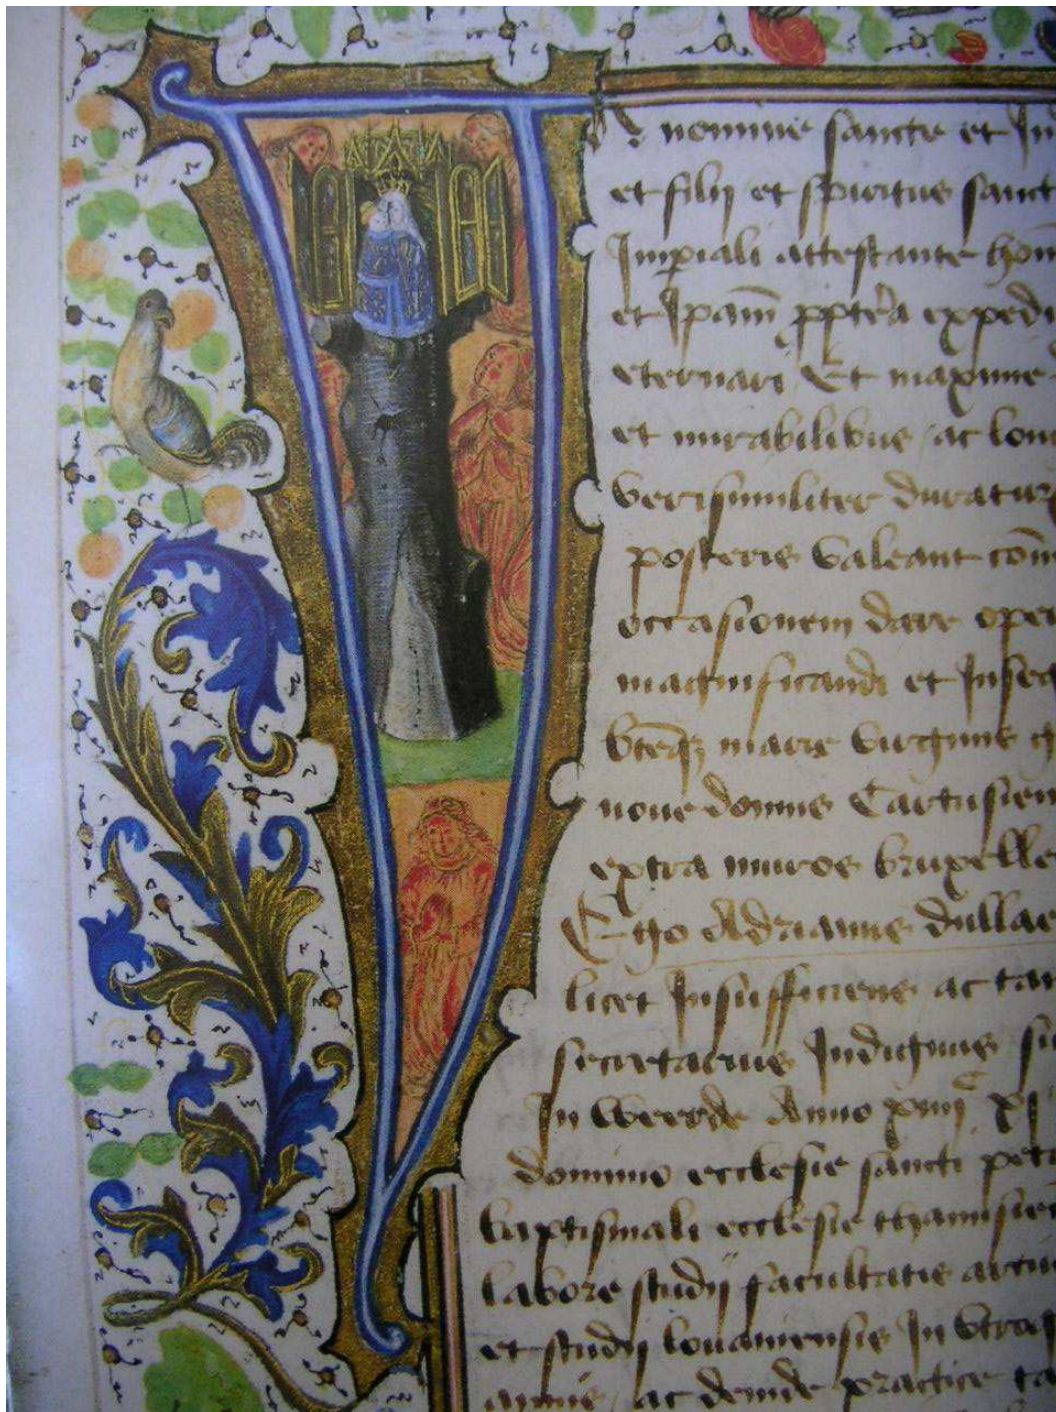 nomine sancte et In
et filij et spiritus sanct
Imperiali attestante hom
et Ipam ppterea expedi
eternari Et maxime
et mirabilibus ac lon
verisimiliter duratur
posteris valeant com
occasionem dare oper
magnificandi et Inseq
marie virginis
noue domus Cartusien
extra muros bruxelle
Ego Adrianus dullae
licet Insufficiens ac tan
secretarius Indignus su
In weerde Anno xiiij
domino ecclesie sancti petr
baptismali ecclesie thamisien
labore studij facultatis arciu
et studij louaniensis In vtraq
annis ac deinde practice ta